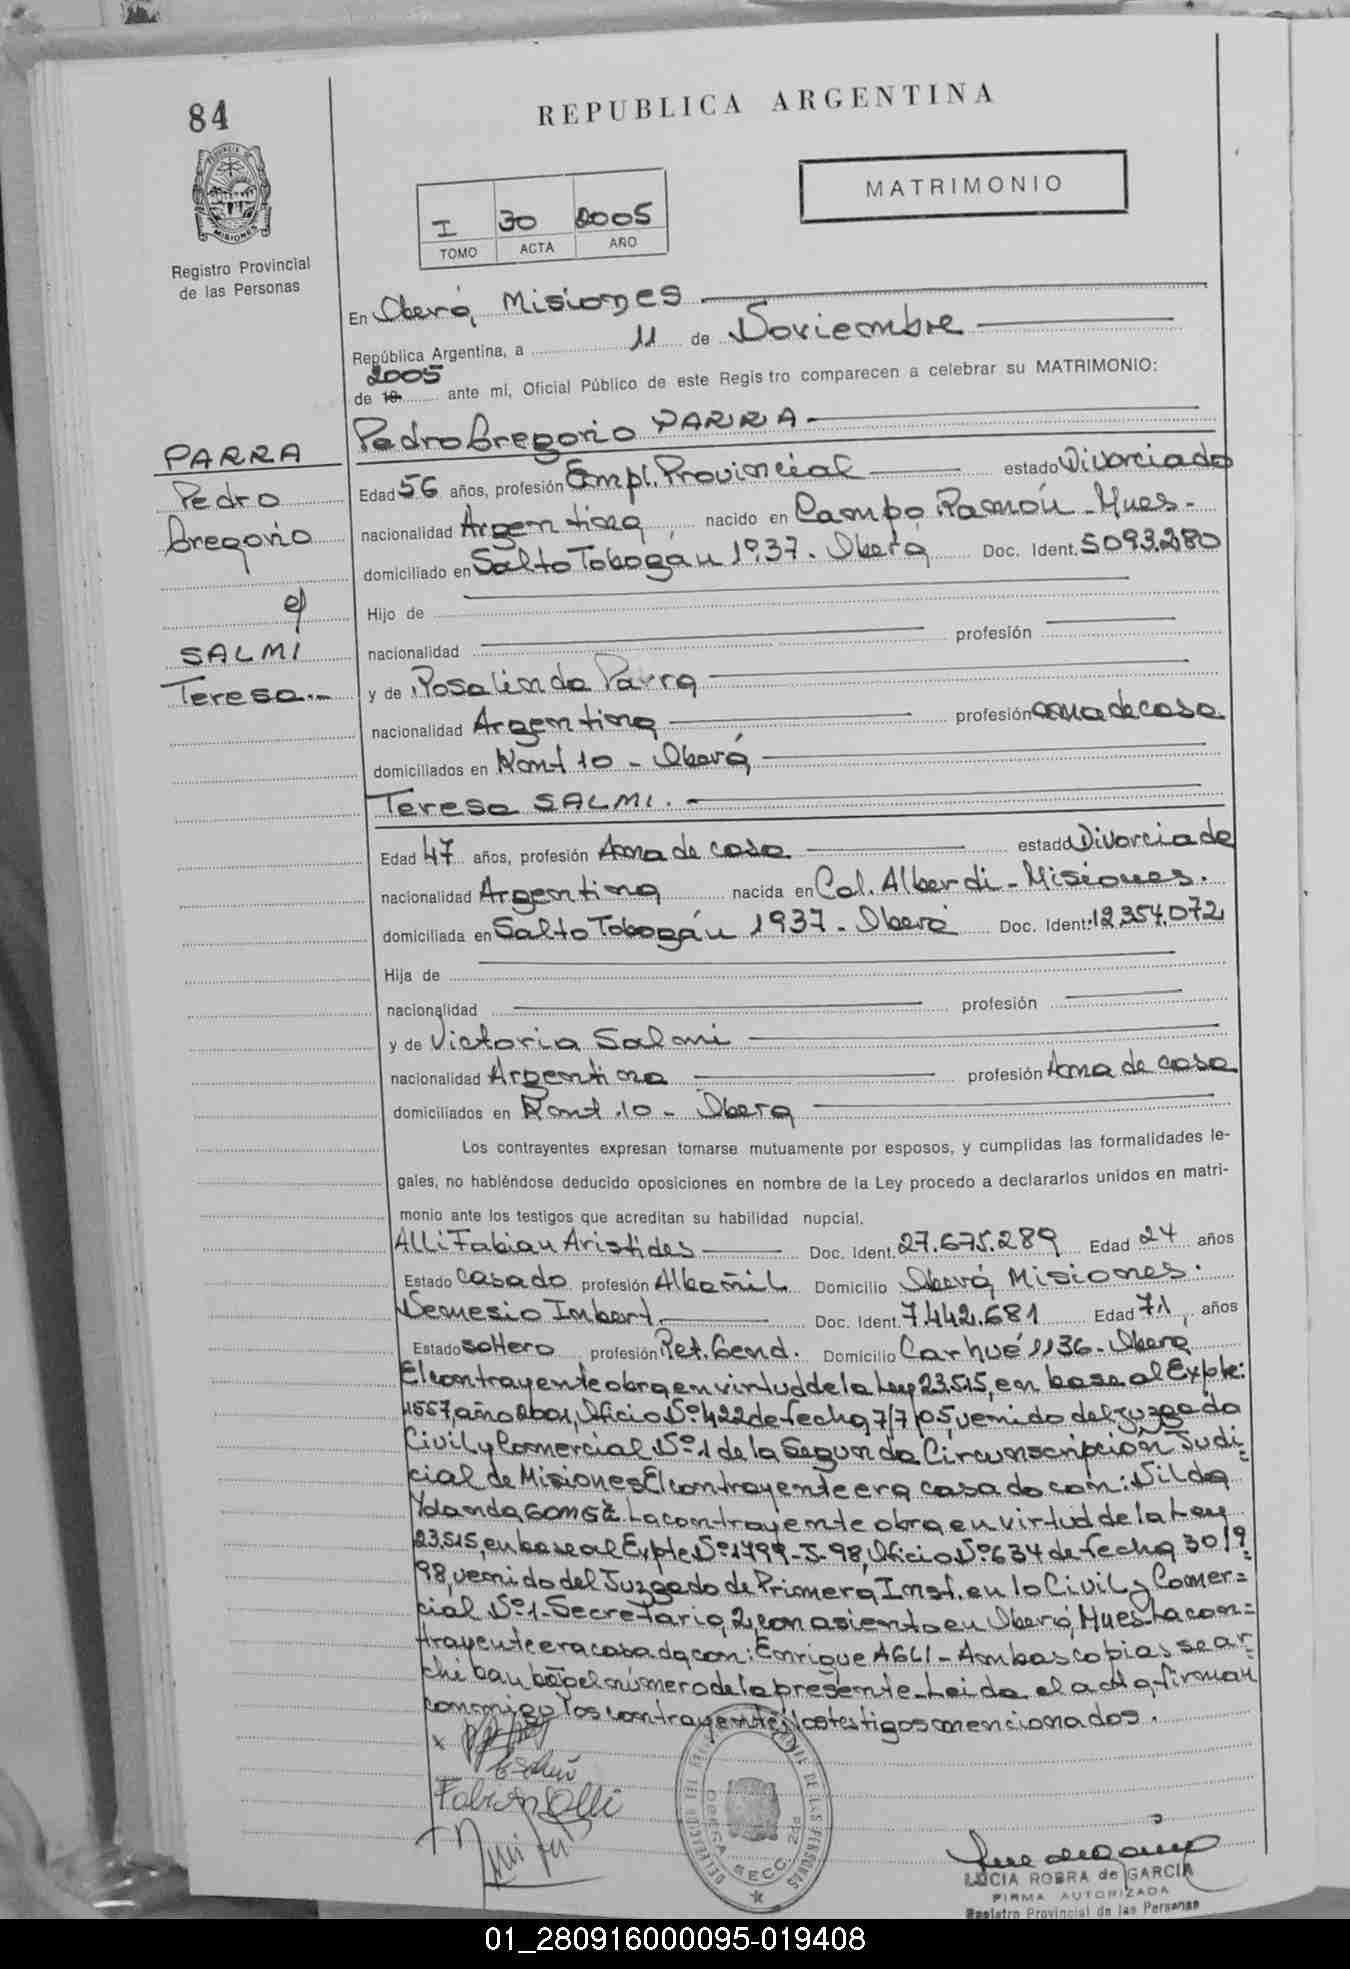 84
REPUBLICA ARGENTINA
PROVINCIA DE MISIONES
Registro Provincial
de las Personas
MATRIMONIO
I 30 2005
TOMO ACTA AÑO
En Oberá, Misiones
República Argentina, a 11 de Noviembre
2005
de 19 ante mi, Oficial Público de este Registro comparecen a celebrar su MATRIMONIO:
PARRA
Pedro
Gregorio
c/
SALMI
Teresa.-
Pedro Gregorio PARRA
Edad 56 años, profesión Empl. Provincial estado Divorciado
nacionalidad Argentina nacido en Campo Ramón - Mnes -
domiciliado en Salto Tobogán 1937 - Oberá Doc. Ident. 5093.280
Hijo de
nacionalidad profesión
y de Rosalinda Parra
nacionalidad Argentina profesión ama de casa
domiciliados en Kont 10 - Oberá
Teresa SALMI.
Edad 47 años, profesión Ama de casa estado Divorciada
nacionalidad Argentina nacida en Col. Alberdi - Misiones.
domiciliada en Salto Tobogán 1937 - Oberá Doc. Ident: 12.354.072
Hija de
nacionalidad profesión
y de Victoria Salmi
nacionalidad Argentina profesión Ama de casa
domiciliados en Kont. 10 - Oberá
Los contrayentes expresan tomarse mutuamente por esposos, y cumplidas las formalidades le-
gales, no habiéndose deducido oposiciones en nombre de la Ley procedo a declararlos unidos en matri-
monio ante los testigos que acreditan su habilidad nupcial.
Alli Fabian Aristides Doc. Ident. 27.675.289 Edad 24 años
Estado Casado profesión Albañil Domicilio Oberá, Misiones.
Nemesio Imbert. Doc. Ident. 7.442.681 Edad 71 años
Estado soltero profesión Ret. Gend. Domicilio Carhué 1136 - Oberá
El contrayente obra en virtud de la Ley 23.515, en base al Expte:
1557, año 2001, Oficio Nº 422 de fecha 7/7/05, venido del Juzgado
Civil y Comercial Nº 1 de la Segunda Circunscripción Judi=
cial de Misiones El contrayente era casado con: Nilda
Yolanda GOMEZ. La contrayente obra en virtud de la Ley
23.515, en base al Expte Nº 1799-J-98, Oficio Nº 634 de fecha 30/9
98, venido del Juzgado de Primera Inst. en lo Civil y Comer=
cial Nº 1 - Secretaria 2, con asiento en Oberá, Mnes La con=
trayente era casada con: Enrique AGLI - Ambas copias se ar=
chiban bajo el número de la presente. Leida el acta, firman
conmigo los contrayentes, los testigos mencionados.
x
Fabian Alli
LUCIA ROBRA de GARCIA
FIRMA AUTORIZADA
Registro Provincial de las Personas
01_280916000095-019408